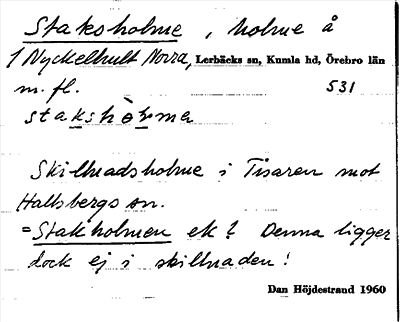 Staksholme, holme å
1 Nyckelhult Norra, Lerbäcks sn, Kumla hd, Örebro län
m. fl. 531
stakshòlma
Skillnadsholme i Tisaren mot
Hallsbergs sn.
= Stakholmen ek? Denna ligger
dock ej i skillnaden!
Dan Höjdestrand 1960